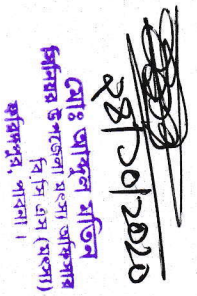 ২৪/১০/২০২০
মোঃ আব্দুল মতিন
সিনিয়র উপজেলা মৎস্য অফিসার
বি.সি.এস (মৎস্য)
ফরিদপুর, পাবনা।